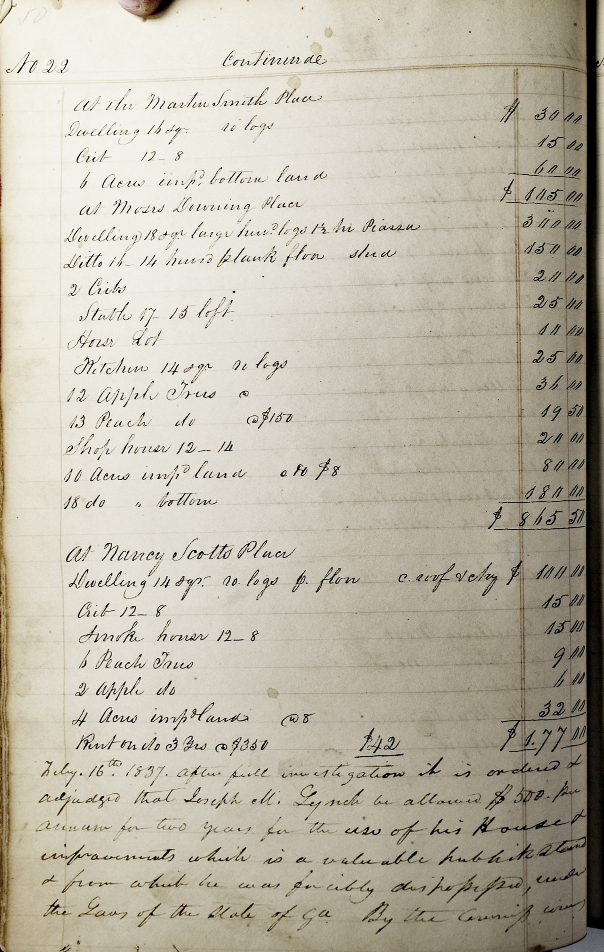 No 22 Continuade
At the Martin Smith Place
Dwelling 16 sqr. ro logs $ 30 00
Crib 12-8 15 00
6 Acres imp.d bottom land 60 00
$ 105 00
At Moses Downing Place
Dwelling 18 sqr large hewd logs 1½ hi Piazza 300 00
Ditto 16-14 hewd plank floor shed 150 00
2 Cribs 20 00
Stable 17-15 loft 25 00
Horse Lot 10 00
Kitchen 14 sqr ro logs 25 00
12 Apple Trees @ 36 00
13 Peach do @ $150 19 50
Shop house 12-14 20 00
10 Acres imp.d land @ $8 80 00
18 do " bottom 180 00
$ 865 50
At Nancy Scotts Place
Dwelling 14 sqr. ro. logs p. floor c. roof & chy $ 100 00
Crib 12-8 15 00
Smoke house 12-8 15 00
6 Peach Trees 9 00
2 Apple do 6 00
4 Acres imp.d land @ 8 32 00
Rent on do 3 Yrs @ $350 $42 $ 177 00
Feby. 16th 1837. after full investigation it is ordered &
adjudged that Joseph M. Lynch be allowed $ 500. per
annum for two years for the use of his House &
improvements which is a valuable publik stand
& from which he was forcibly dispossessed, under
the Laws of the State of Ga. By the